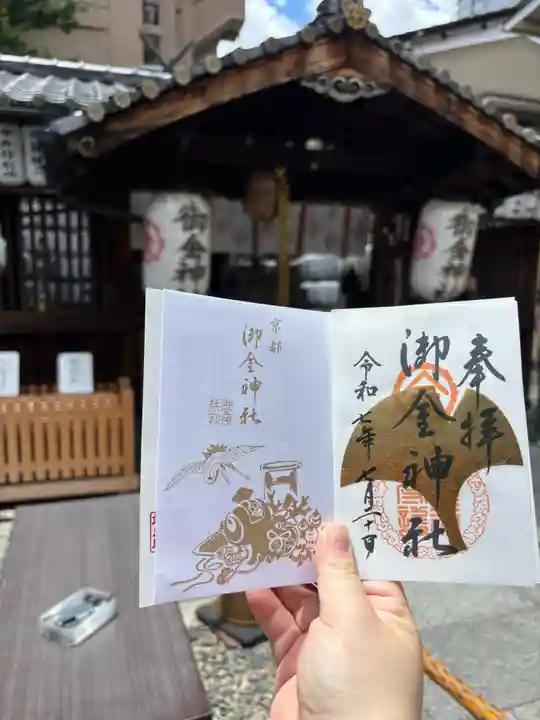 京都
御金神社
奉拝
御金神社
令和七年七月二十日
御金神
御金神